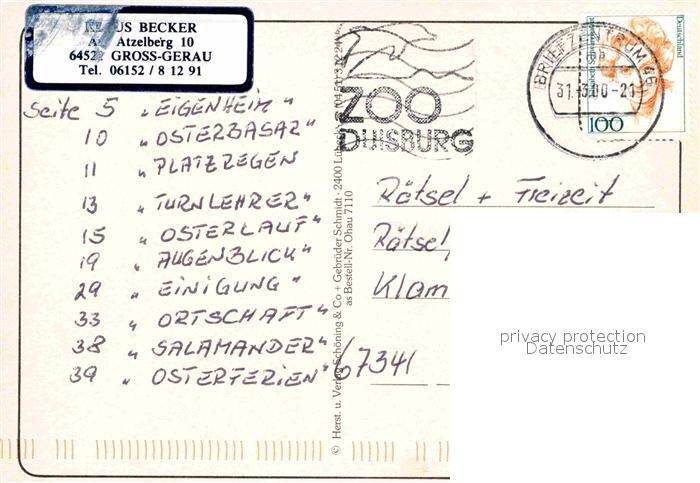 KLAUS BECKER
Am Atzelberg 10
64521 GROSS-GERAU
Tel. 06152 / 8 12 91
Seite 5 "EIGENHEIM"
10 "OSTERBASAR"
11 "PLATZREGEN
13 "TURNLEHRER"
15 "OSTERLAUF"
19 "AUGENBLICK"
29 "EINIGUNG"
33 "ORTSCHAFT"
38 "SALAMANDER"
39 "OSTERFERIEN"
© Herst. u. Verlag Schöning & Co + Gebrüder Schmidt · 2400 Lübeck
as Bestell-Nr. Ohau 7110
ZOO
DUISBURG
BRIEFZENTRUM 46
31.-3.00-21
Deutschland
100
Rätsel + Freizeit
Rätsel
Klam
67341
privacy protection
Datenschutz